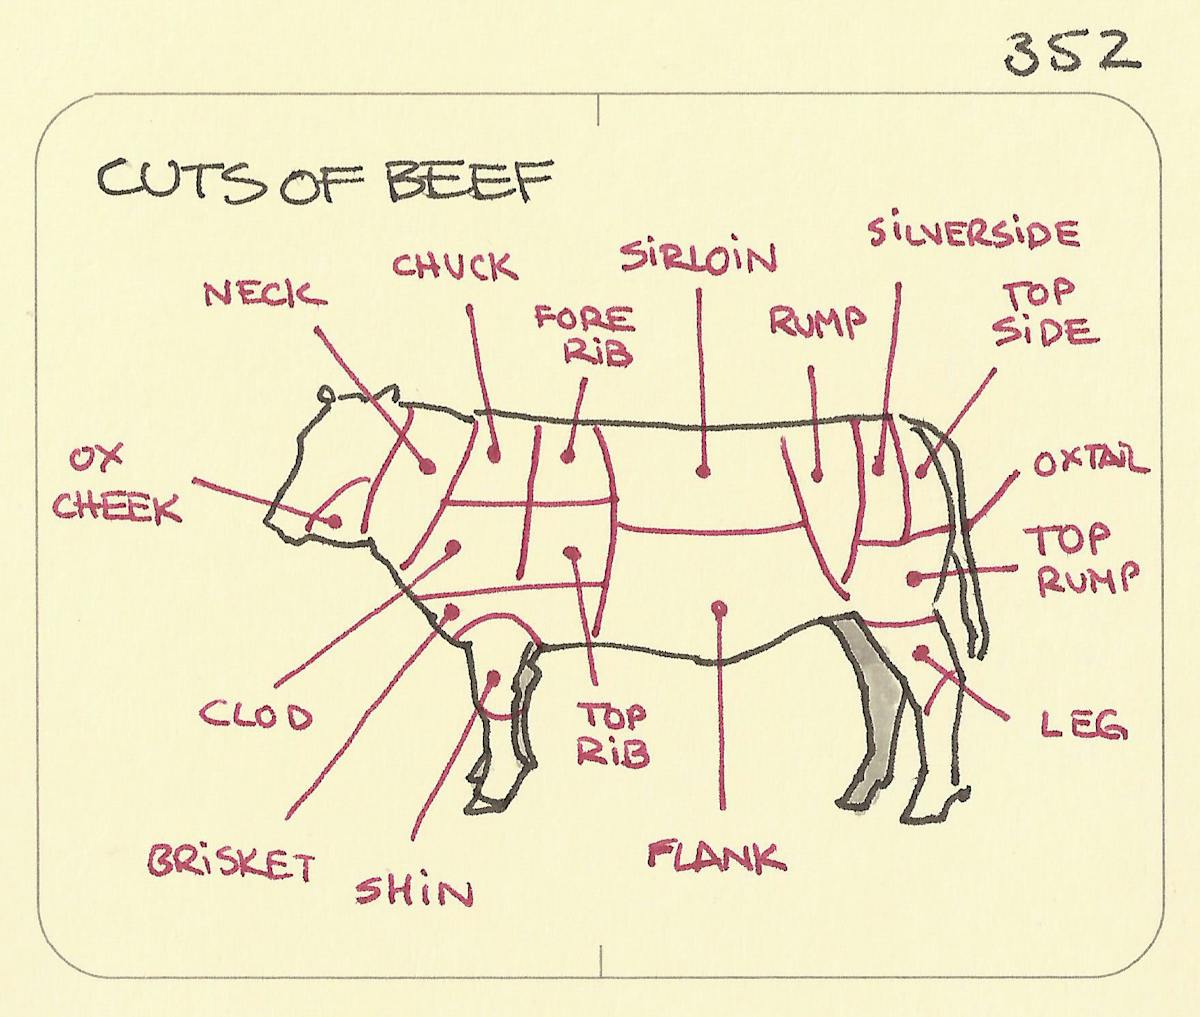 352
CUTS OF BEEF
SiLVERSiDE
CHUCK
SiRLOiN
NECK
TOP
SiDE
FORE
RiB
RUMP
OX
CHEEK
OXTAIL
TOP
RUMP
CLOD
TOP
RiB
LEG
BRiSKET
SHiN
FLANK